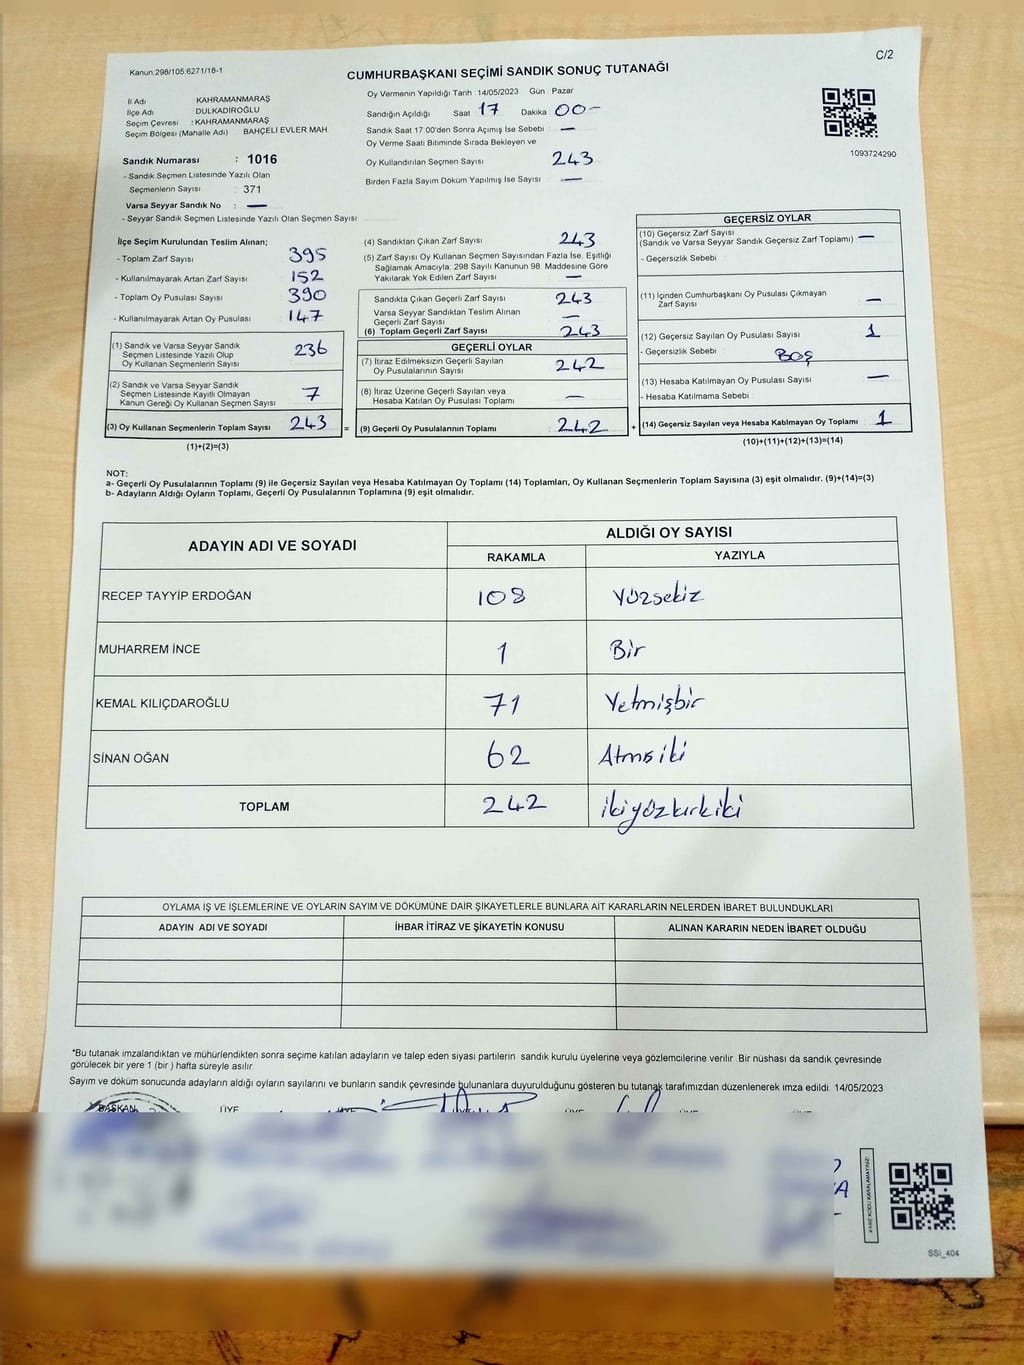 C/2
Kanun:298/105,6271/18-1
CUMHURBAŞKANI SEÇİMİ SANDIK SONUÇ TUTANAĞI
İl Adı KAHRAMANMARAŞ
İlçe Adı DULKADİROĞLU
Seçim Çevresi : KAHRAMANMARAŞ
Seçim Bölgesi (Mahalle Adı) BAHÇELİ EVLER MAH
Oy Vermenin Yapıldığı Tarih : 14/05/2023 Gün : Pazar
Sandığın Açıldığı Saat 17 Dakika 00-
Sandık Saat 17.00'den Sonra Açımış İse Sebebi : —
Oy Verme Saati Bitiminde Sırada Bekleyen ve
Oy Kullandırılan Seçmen Sayısı 243
Birden Fazla Sayım Döküm Yapılmış İse Sayısı : —
1093724290
Sandık Numarası : 1016
- Sandık Seçmen Listesinde Yazılı Olan
Seçmenlerin Sayısı : 371
Varsa Seyyar Sandık No : —
- Seyyar Sandık Seçmen Listesinde Yazılı Olan Seçmen Sayısı
İlçe Seçim Kurulundan Teslim Alınan;
- Toplam Zarf Sayısı : 395
- Kullanılmayarak Artan Zarf Sayısı : 152
- Toplam Oy Pusulası Sayısı : 390
- Kullanılmayarak Artan Oy Pusulası : 147
(1) Sandık ve Varsa Seyyar Sandık
Seçmen Listesinde Yazılı Olup
Oy Kullanan Seçmenlerin Sayısı : 236
(2) Sandık ve Varsa Seyyar Sandık
Seçmen Listesinde Kayıtlı Olmayan
Kanun Gereği Oy Kullanan Seçmen Sayısı : 7
(3) Oy Kullanan Seçmenlerin Toplam Sayısı : 243 =
(1)+(2)=(3)
(4) Sandıktan Çıkan Zarf Sayısı : 243
(5) Zarf Sayısı Oy Kullanan Seçmen Sayısından Fazla İse, Eşitliği
Sağlamak Amacıyla, 298 Sayılı Kanunun 98. Maddesine Göre
Yakılarak Yok Edilen Zarf Sayısı : —
Sandıkta Çıkan Geçerli Zarf Sayısı : 243
Varsa Seyyar Sandıktan Teslim Alınan
Geçerli Zarf Sayısı : —
(6) Toplam Geçerli Zarf Sayısı : 243
GEÇERLİ OYLAR
(7) İtiraz Edilmeksizin Geçerli Sayılan
Oy Pusulalarının Sayısı : 242
(8) İtiraz Üzerine Geçerli Sayılan veya
Hesaba Katılan Oy Pusulası Toplamı : —
(9) Geçerli Oy Pusulalarının Toplamı : 242 +
GEÇERSİZ OYLAR
(10) Geçersiz Zarf Sayısı
(Sandık ve Varsa Seyyar Sandık Geçersiz Zarf Toplamı) : —
- Geçersizlik Sebebi :
(11) İçinden Cumhurbaşkanı Oy Pusulası Çıkmayan
Zarf Sayısı : —
(12) Geçersiz Sayılan Oy Pusulası Sayısı : 1
- Geçersizlik Sebebi : BOŞ
(13) Hesaba Katılmayan Oy Pusulası Sayısı : —
- Hesaba Katılmama Sebebi :
(14) Geçersiz Sayılan veya Hesaba Katılmayan Oy Toplamı : 1
(10)+(11)+(12)+(13)=(14)
NOT:
a- Geçerli Oy Pusulalarının Toplamı (9) ile Geçersiz Sayılan veya Hesaba Katılmayan Oy Toplamı (14) Toplamları, Oy Kullanan Seçmenlerin Toplam Sayısına (3) eşit olmalıdır. (9)+(14)=(3)
b- Adayların Aldığı Oyların Toplamı, Geçerli Oy Pusulalarının Toplamına (9) eşit olmalıdır.
ADAYIN ADI VE SOYADI ALDIĞI OY SAYISI
RAKAMLA YAZIYLA
RECEP TAYYİP ERDOĞAN 108 Yüzsekiz
MUHARREM İNCE 1 Bir
KEMAL KILIÇDAROĞLU 71 Yetmişbir
SİNAN OĞAN 62 Atmış iki
TOPLAM 242 ikiyüzkırkiki
OYLAMA İŞ VE İŞLEMLERİNE VE OYLARIN SAYIM VE DÖKÜMÜNE DAİR ŞİKAYETLERLE BUNLARA AİT KARARLARIN NELERDEN İBARET BULUNDUKLARI
ADAYIN ADI VE SOYADI İHBAR İTİRAZ VE ŞİKAYETİN KONUSU ALINAN KARARIN NEDEN İBARET OLDUĞU
*Bu tutanak imzalandıktan ve mühürlendikten sonra seçime katılan adayların ve talep eden siyasi partilerin sandık kurulu üyelerine veya gözlemcilerine verilir. Bir nüshası da sandık çevresinde
görülecek bir yere 1 (bir ) hafta süreyle asılır.
Sayım ve döküm sonucunda adayların aldığı oyların sayılarını ve bunların sandık çevresinde bulunanlara duyurulduğunu gösteren bu tutanak tarafımızdan düzenlenerek imza edildi. 14/05/2023
BAŞKAN ÜYE ÜYE ÜYE ÜYE ÜYE ÜYE
KARE KODU KARALAMAYINIZ!
SSİ_404